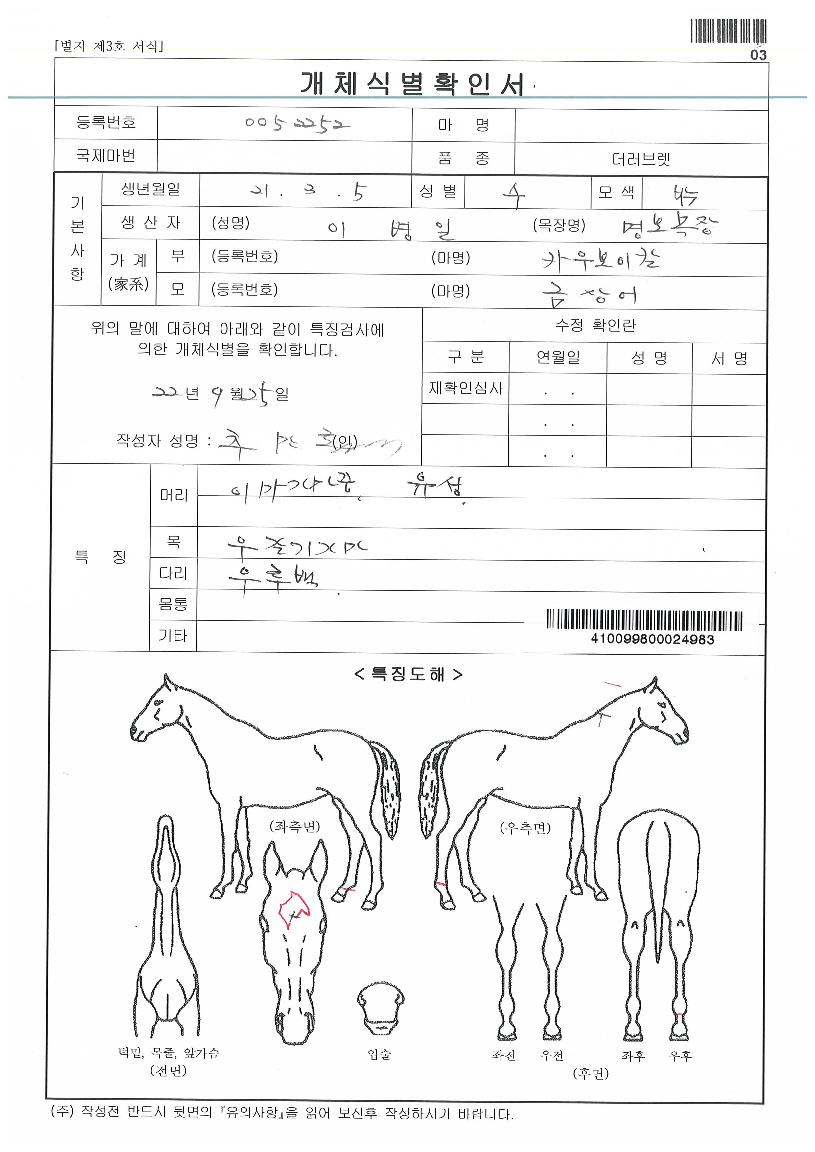 「별지 제3호 서식」
03
개체식별확인서
등록번호 0052252 마 명
국제마번 품 종 더러브렛
기본사항
생년월일 21. 3. 5 성 별 수 모 색
생 산 자 (성명) 이 병 일 (목장명) 명보목장
가 계 (家系) 부 (등록번호) (마명) 카우보이칼
모 (등록번호) (마명) 금장어
위의 말에 대하여 아래와 같이 특징검사에
의한 개체식별을 확인합니다.
22년 9월25일
작성자 성명 : 추 (인)
수정 확인란
구 분 연월일 성 명 서 명
재확인심사 . .
. .
. .
특 징
머리 유성
목
다리 우후백
몸통
기타
410099800024983
< 특징도해 >
(좌측면) (우측면)
턱밑, 목줄, 앞가슴
(전면)
입술
좌전 우전 좌후 우후
(후면)
(주) 작성전 반드시 뒷면의 『유의사항』을 읽어 보신후 작성하시기 바랍니다.